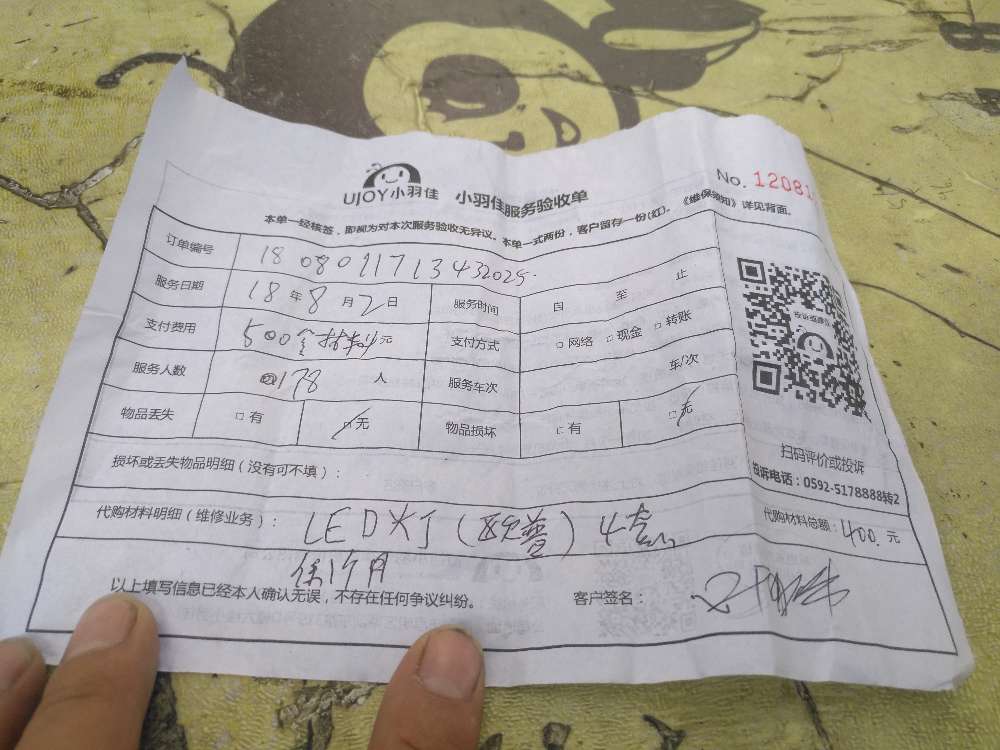 UJOY小羽佳 小羽佳服务验收单
No. 12081
本单一经核签，即视为对本次服务验收无异议。本单一式两份，客户留存一份(红)。《维保须知》详见背面。
订单编号 1808011713432025
服务日期 18年8月2日 服务时间 自 至 止
支付费用 500 元 支付方式 □网络 □现金 □转账
服务人数 178 人 服务车次 车/次
物品丢失 □有 □无 物品损坏 □有 □无
损坏或丢失物品明细（没有可不填）：
扫码评价或投诉
投诉电话：0592-5178888转2
代购材料明细（维修业务）： LED灯（欧普）4套 代购材料总额：400.元
保1个月
以上填写信息已经本人确认无误，不存在任何争议纠纷。 客户签名：